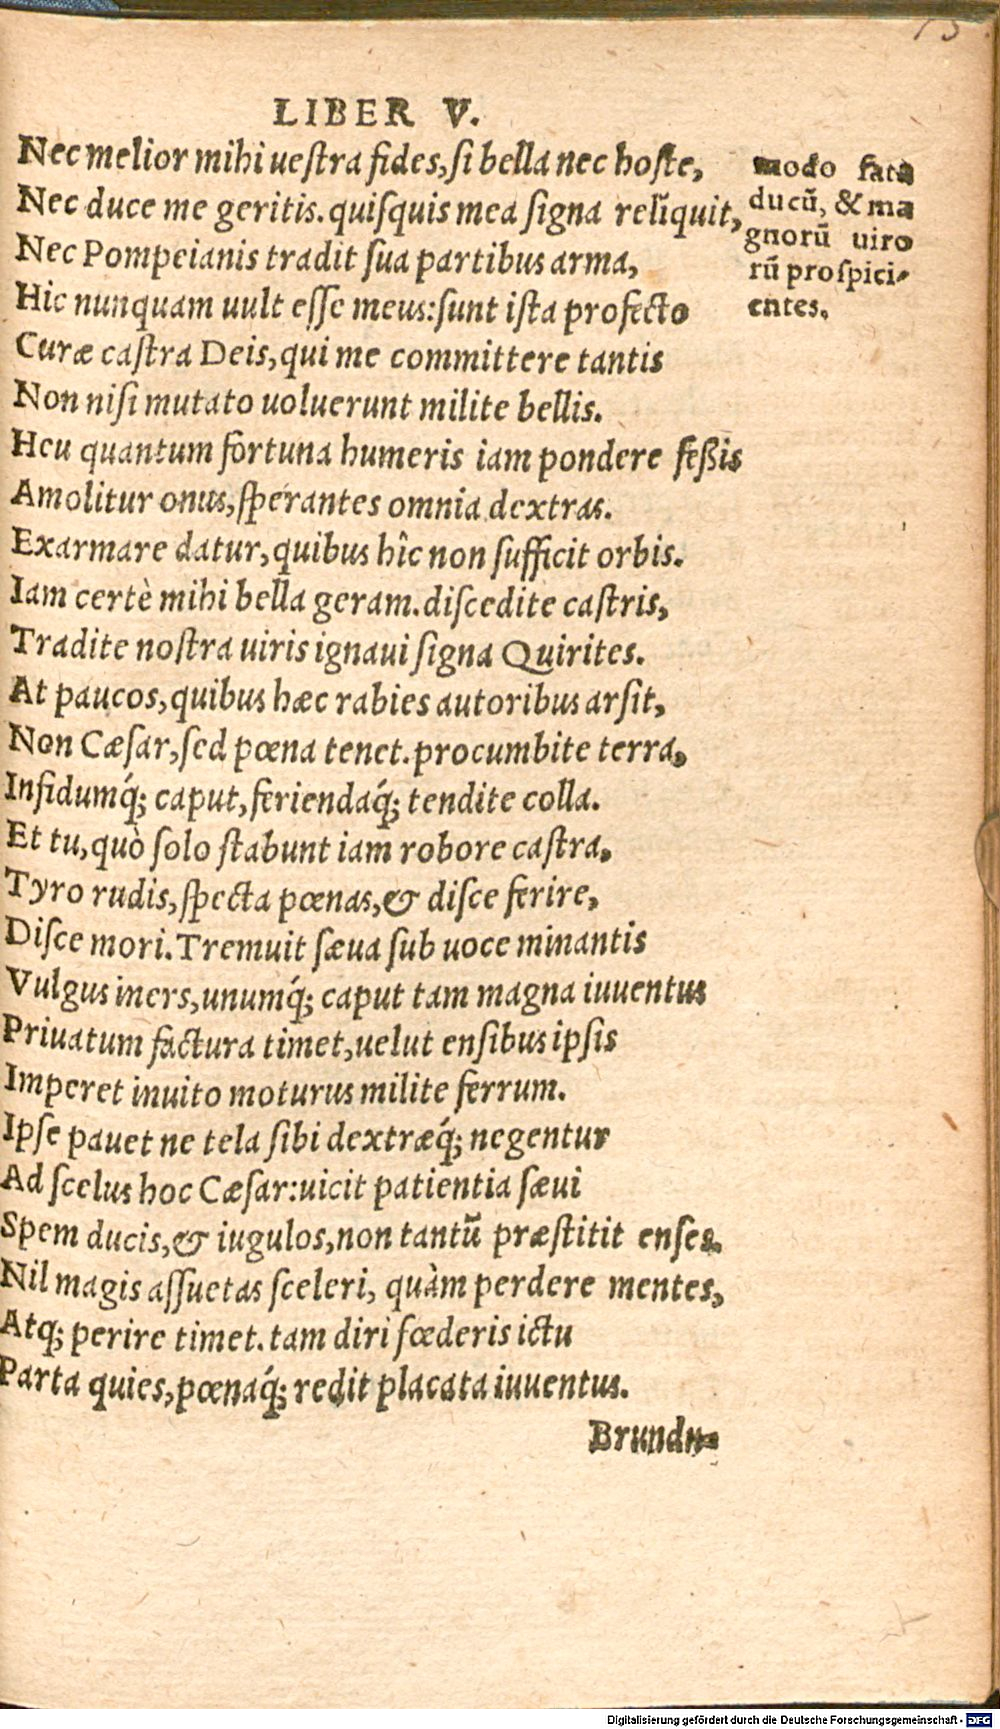 LIBER V.
Nec melior mihi ueſtra fides, ſi bella nec hoſte,
Nec duce me geritis. quiſquis mea ſigna relīquit,
Nec Pompeianis tradit ſua partibus arma,
Hic nunquam uult eſſe meus: ſunt iſta profecto
Curæ caſtra Deis, qui me committere tantis
Non niſi mutato uoluerunt milite bellis.
Heu quantum fortuna humeris iam pondere feßis
Amolitur onus, ſperantes omnia dextras.
Exarmare datur, quibus hîc non ſufficit orbis.
Iam certè mihi bella geram. diſcedite caſtris,
Tradite noſtra uiris ignaui ſigna Quirites.
At paucos, quibus hæc rabies autoribus arſit,
Non Cæſar, ſed pœna tenet. procumbite terra,
Infidumq́; caput, feriendaq́; tendite colla.
Et tu, quò ſolo ſtabunt iam robore caſtra,
Tyro rudis, ſpecta pœnas, & diſce ferire,
Diſce mori. Tremuit ſæua ſub uoce minantis
Vulgus iners, unumq́; caput tam magna iuuentus
Priuatum factura timet, uelut enſibus ipſis
Imperet inuito moturus milite ferrum.
Ipſe pauet ne tela ſibi dextræq́; negentur
Ad ſcelus hoc Cæſar: uicit patientia ſæui
Spem ducis, & iugulos, non tantū præſtitit enſes.
Nil magis aſſuetas ſceleri, quàm perdere mentes,
Atq; perire timet. tam diri fœderis ictu
Parta quies, pœnaq́; redit placata iuuentus.
Brundu-
modo fata
ducū, & ma
gnorū uiro
rū proſpici-
entes.
Digitalisierung gefördert durch die Deutsche Forschungsgemeinschaft - DFG